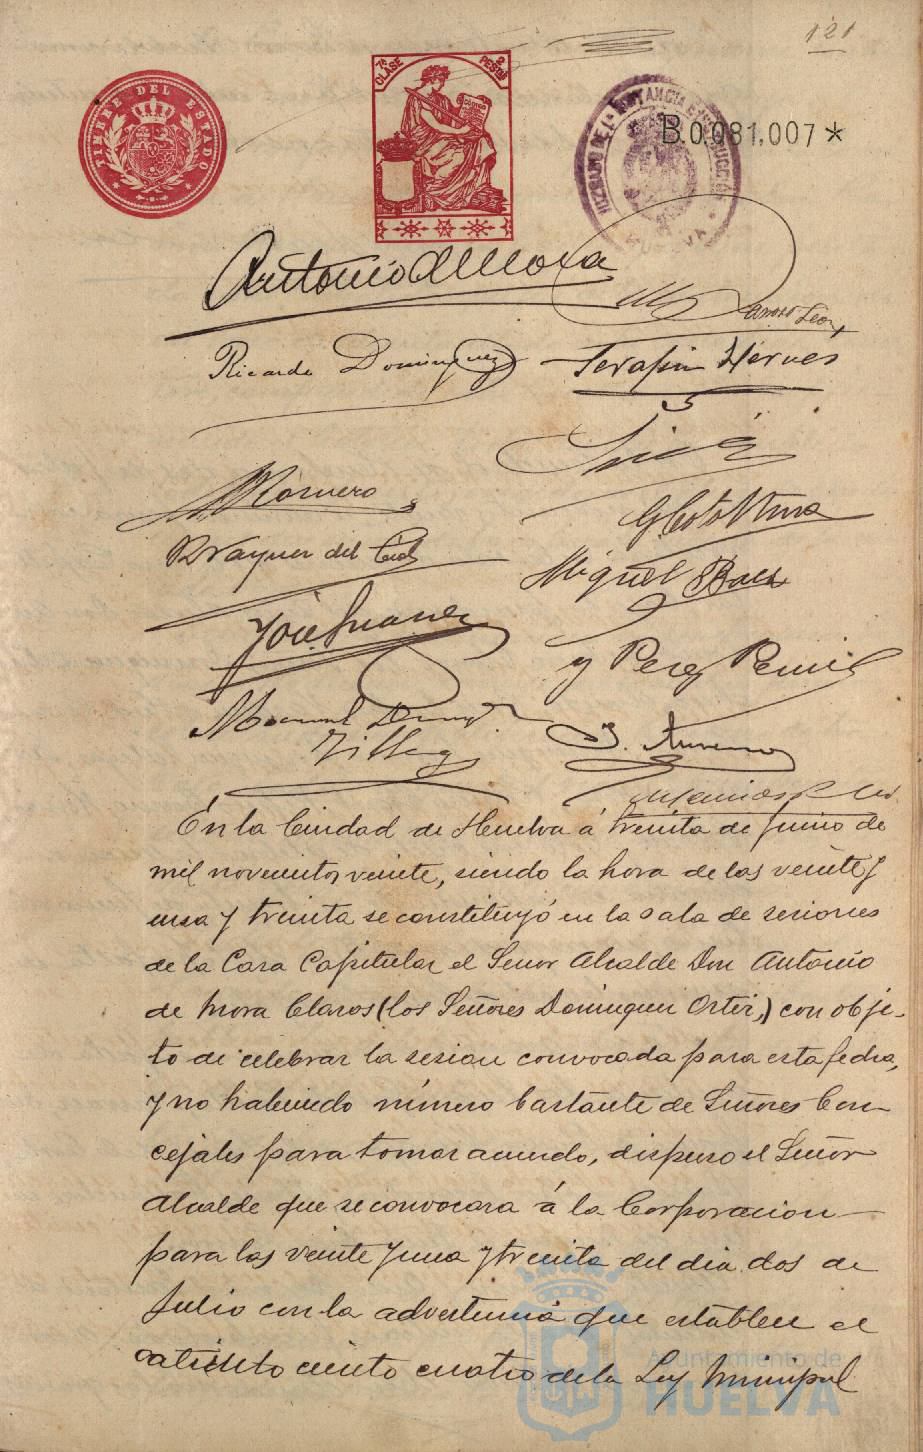 121
TIMBRE DEL ESTADO
7ª CLASE
2 PESETAS
JUZGADO DE 1ª INSTANCIA E INSTRUCCIÓN
HUELVA
B.0.081,007*
Antonio de Mora
Ricardo Dominguez
Serafin Hervés
Romero
G Coto Mora
R Vazquez del Cid
Miguel Baez
José Suarez
y Perez
Manuel Doming
En la Ciudad de Huelva á treinta de Junio de
mil novecientos veinte, siendo la hora de las veinte y
una y treinta se constituyó en la sala de sesiones
de la Casa Capitular el Señor Alcalde Don Antonio
de Mora Claros (los Señores Dominguez Ortiz,) con obje-
to de celebrar la sesion convocada para esta fecha,
y no habiendo número bastante de Señores Con-
cejales para tomar acuerdo, dispuso el Señor
Alcalde que se convocara á la Corporacion
para las veinte y una y treinta del dia dos de
Julio con la advertencia que establece el
articulo ciento cuatro de la Ley Municipal
Ayuntamiento de
HUELVA